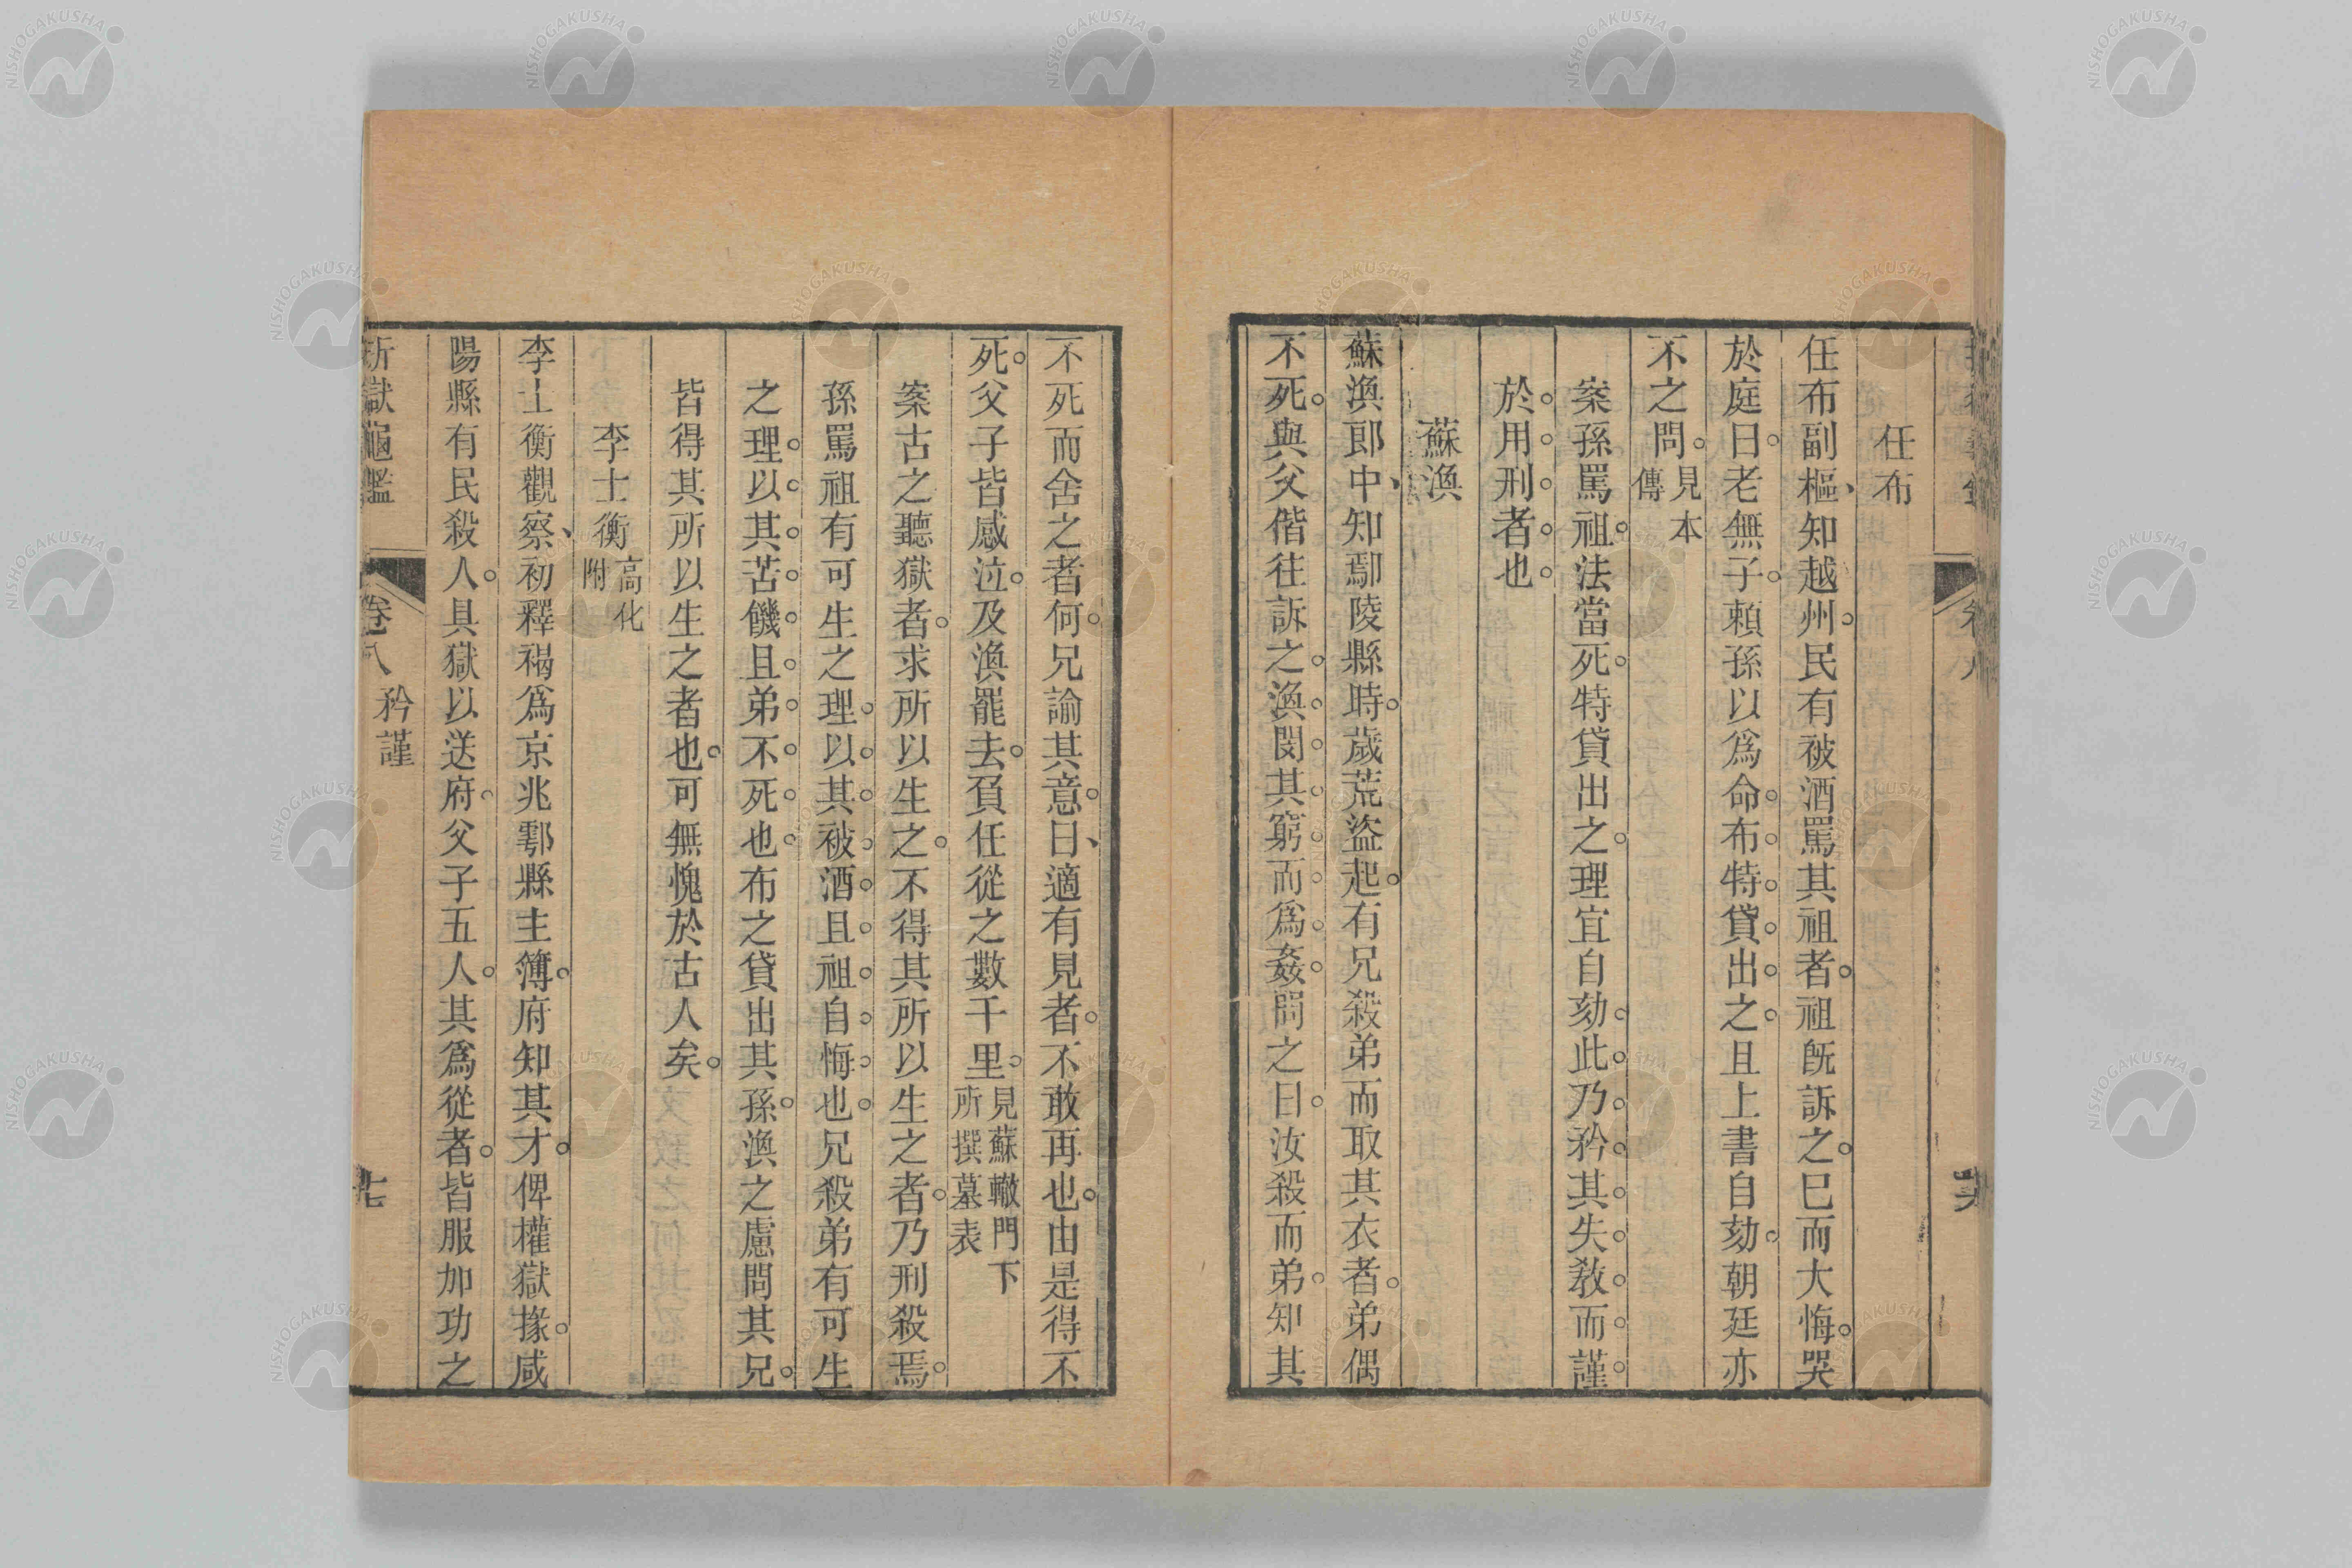 任布
任布副樞、知越州。民有被酒罵其祖者。祖旣訴之。巳而大悔。哭
於庭曰。老無子。賴孫以爲命。布。特。貸。出。之。且上書自劾。朝廷亦
不之問。見本傳
案孫罵祖。法當死。特貸出之。理宜自劾。此。乃。矜。其。失。敎。而。謹。
於。用。刑。者。也。
蘇渙
蘇渙郎中、知鄢陵縣時。歲荒盜起。有兄殺弟而取其衣者。弟偶
不死。與父偕往訴之。渙。閔。其。窮。而。爲。姦。問之曰。汝殺而弟。知其
不死而舍之者何。兄諭其意。曰、適有見者。不敢再也。由是得不
死。父子皆感泣。及渙罷去。負任從之數千里。見蘇轍門下所撰墓表
案古之聽獄者。求所以生之。不得其所以生之者。乃刑殺焉。
孫罵祖有可生之理。以。其。被。酒。且。祖。自。悔。也。兄殺弟有可生
之理。以。其。苦。饑。且。弟。不。死。也。布之貸出其孫。渙之慮問其兄。
皆得其所以生之者也。可無愧於古人矣。
李士衡高化附
李士衡觀察、初釋褐爲京兆鄠縣主簿。府知其才。俾權獄掾。咸
陽縣有民殺人。具獄以送府。父子五人。其爲從者。皆服加功之
折獄龜鑑 卷八 矜謹 十七